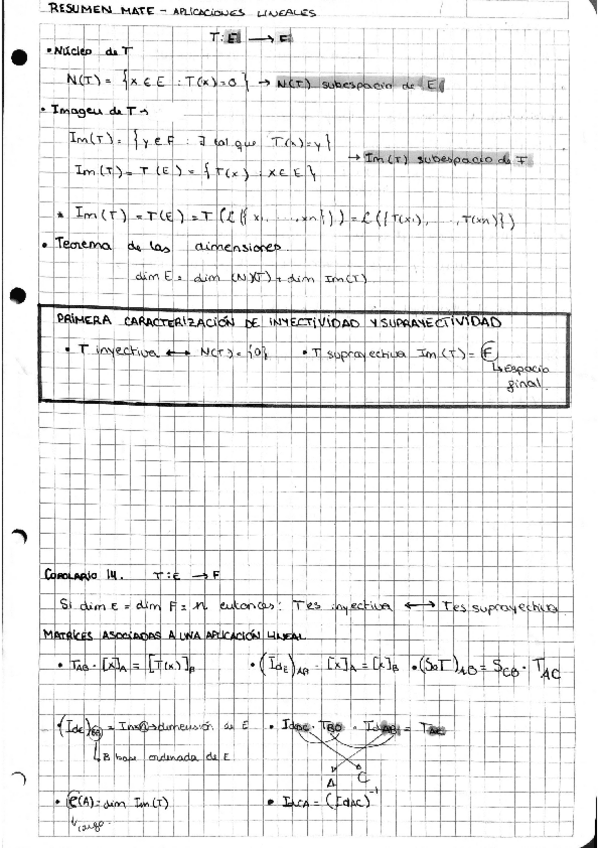 RESUMEN MATE - APLICACIONES LINEALES
T: E → F
• Núcleo de T
N(T) = {x ∈ E : T(x)=0} → N(T) subespacio de E
• Imagen de T →
Im(T) = {y ∈ F : ∃ tal que T(x)=y}
→ Im(T) subespacio de F
Im(T) = T(E) = {T(x) : x ∈ E}
* Im(T) = T(E) = T(L({x1, ..., xn})) = L({T(x1), ..., T(xn)})
• Teorema de las dimensiones
dim E = dim (N)(T) + dim Im(T)
PRIMERA CARACTERIZACIÓN DE INYECTIVIDAD Y SUPRAYECTIVIDAD
• T inyectiva ↔ N(T) = {0} • T suprayectiva Im(T) = F
↳ Espacio
final.
COROLARIO 14. T: E → F
Si dim E = dim F = n entonces: T es inyectiva ↔ T es suprayectiva
MATRICES ASOCIADAS A UNA APLICACIÓN LINEAL
• TAB · [x]A = [T(x)]B • (IdE)AB · [x]A = [x]B • (S∘T)AB = SCB · TAC
(IdE) = dimensión de E • Id · T · Id = T
↳ B base ordenada de E
A C
• ρ(A) = dim Im(T) • IdCA = (IdAC)⁻¹
↳ rango.